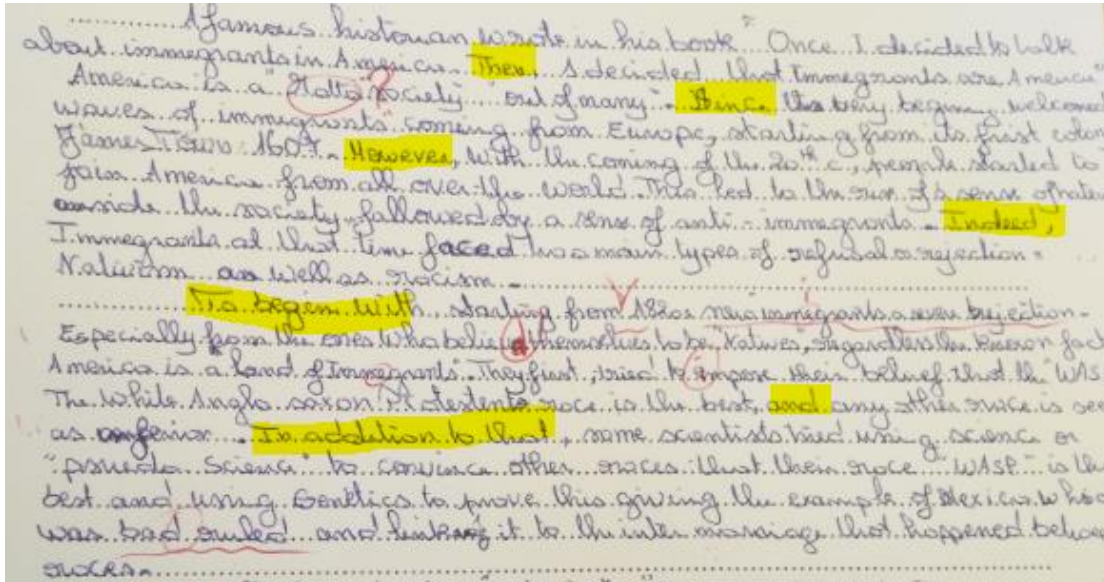 A famous historian wrote in his book " Once I decided to talk
about immegrants in America. Then, I decided that Immegrants are America"
America is a " society "out of many". Since the very begining welcomed
waves of immegrants coming from Europe, starting from its first colon
James Town 1607. However, with the coming of the 20th c, people started to
join America from all over the world. This led to the rise of a sense of
inside the society fallowed by a sense of anti-immegrants. Indeed,
Immegrants at that time faced two main types of refusal or rejection:
Nativism as well as racism.
To begin with, starting from 1820s immegrants rejection.
Especially from the ones who believed themselves to be Natives, regardless the known fact
America is a "Land of Immegrants". They first, tried to impose their belief that the "WAS
The White Anglo saxon race is the best, and any other race is see
as inferior. In addition to that, some scientists tried using science or
"psuedo Science" to convince other races that their race "WASP" is the
best and using Genetics to prove this giving the example of Mexico who
was bad ruled and linking it to the inter marriage that happened between
races.